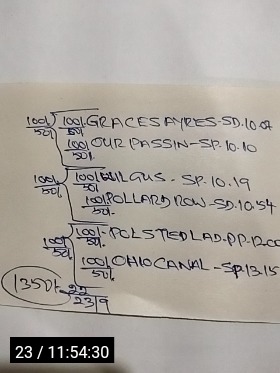 100/50/ 100/50/ GRACESAYRES-SD.10.07
100/50/ OUR PASSIN-SP.10.10
100/50/ 100/50/ WILGUS-SP.10.19
100/50/ POLLARDROW-SD.10.54
100/50/ 100/50/-POLSTIEDLAD-PP.12.00
100/50/ OHIOCANAL-SP.13.15
1350/-
22
2319
23 / 11:54:30